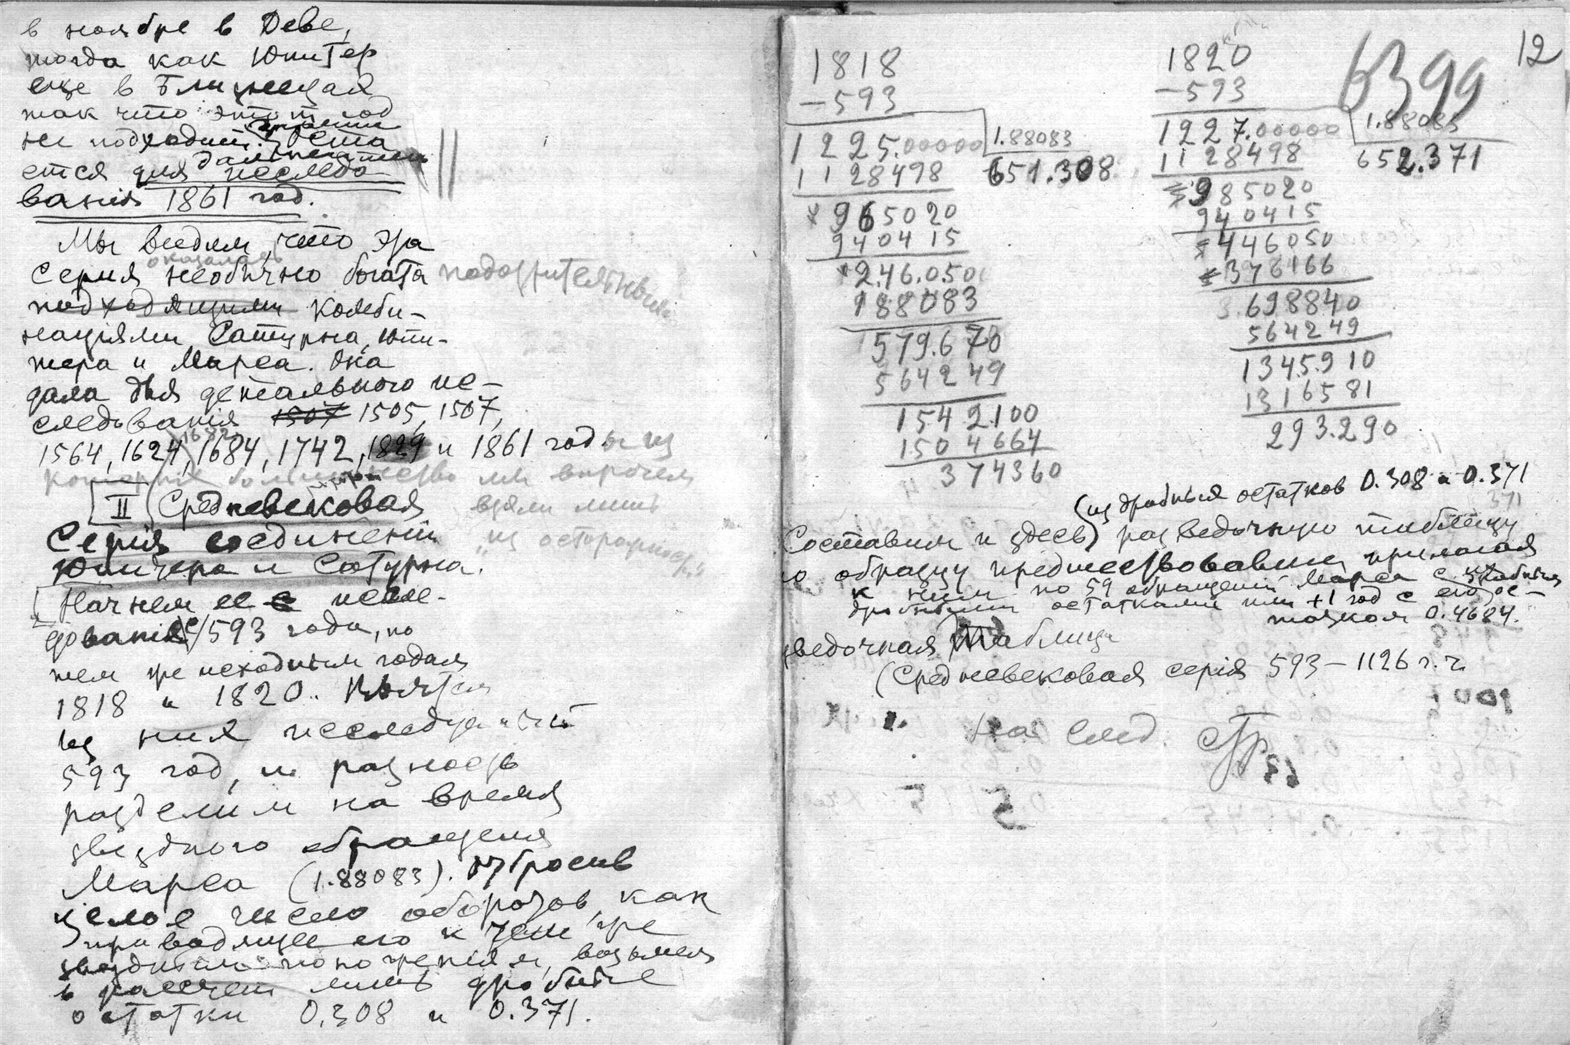 в ноябре в Деве,
тогда как Юпитер
еще в Близнецах
так что этот год
не подходит. Оста
ется для дальнейшаго
изследо-
вания 1861 год.
Мы видим, что эта
серия оказалась необычно богата подозрительными
подходящими комби-
нациями Сатурна, Юпи-
тера и Марса. Она
дала для детальнаго из-
следования 1507 1505, 1507,
1564, 1624, 1682, 1684, 1742, 1829 и 1861 годы из
которых большинство мы впрочем
взяли лишь
из осторожности
II Средневековая
Серия соединений
Юпитера и Сатурна.
Начнем ее изсле-
дование с 593 года, по
тем же исходным годам
1818 и 1820. Вычтем
из них изследуемый
593 год, и разность
разделим на время
звезднаго обращения
Марса (1.88083). Отбросив
целое число оборотов, как
приводящее его к тем же
звездным положениям, возьмем
в рассчет лишь дробные
остатки 0.308 и 0.371.
12
6399
1818
-593
1225.00000 1.88083
1128498 651.308
965020
940415
246.050
188083
579.670
564249
1542.100
1504664
374360
1820
-593
1227.00000 1.88083
1128498 652.371
985020
940415
446050
376166
698840
564249
1345.910
1316581
293.290
(из дробных остатков 0.308 и 0.371
Составим и здесь) разведочную таблицу
по образцу предшествовавших прилагая
к ним по 59 обращений Марса с их
дробными остатками или +1 год с его ос-
татком 0.4684.
ведочная Таблица
(Средневековая серия 593-1126 г. г.
На след. стр.